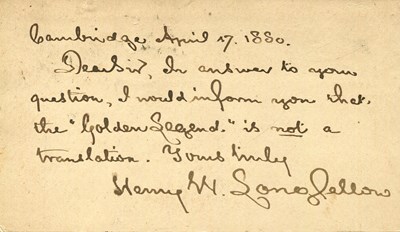 Cambridge April 17. 1880.
Dear Sir, In answer to your
question, I would inform you that
the "Golden Legend." is not a
translation. Yours truly
Henry W. Longfellow